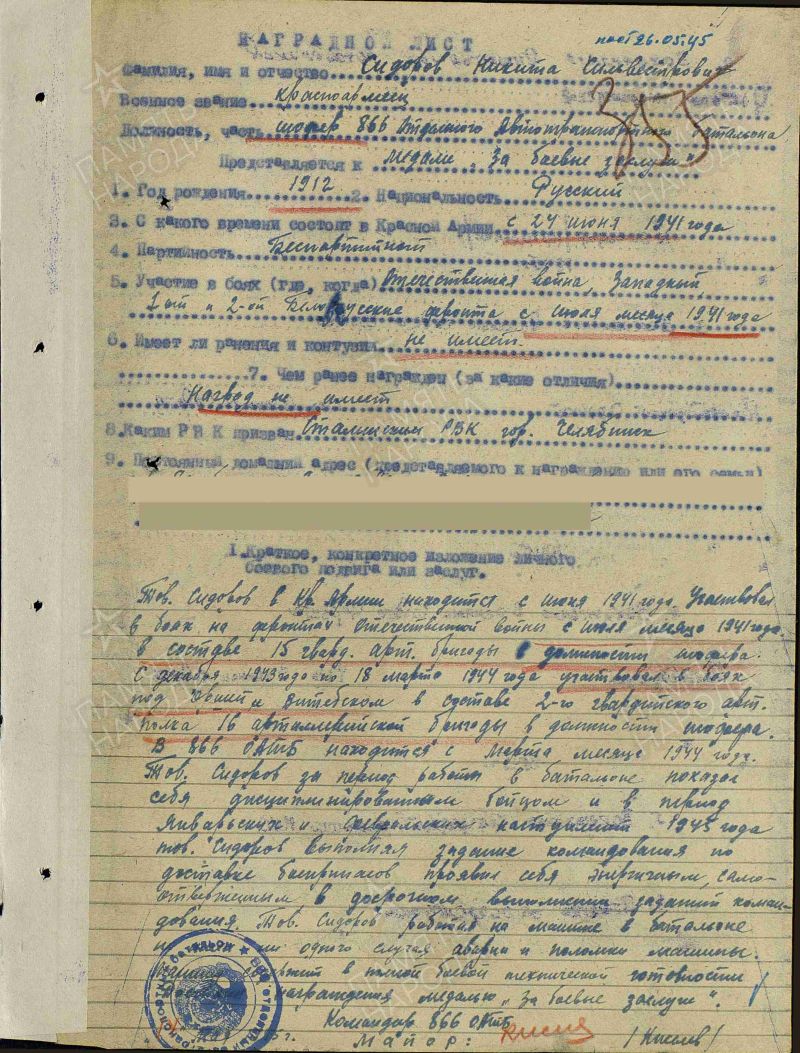 пост 26.05.45
НАГРАДНОЙ ЛИСТ
Фамилия, имя и отчество Сидоров Никита Сильвестрович
Военное звание красноармеец
Должность, часть шофер 866 Отдельного Автотранспортного батальона
Представляется к Медали „За боевые заслуги“
1. Год рождения 1912 2. Национальность Русский
3. С какого времени состоит в Красной Армии с 24 июня 1941 года
4. Партийность Беспартийный
5. Участие в боях (где, когда) Отечественная война, Западный,
1-ый и 2-ой Белорусские фронта с июля месяца 1941 года
6. Имеет ли ранения и контузии не имеет
7. Чем ранее награжден (за какие отличия)
Наград не имеет
8. Каким РВК призван Сталинским РВК гор. Челябинск
9. Постоянный домашний адрес (представляемого к награждению или его семьи)
I. Краткое, конкретное изложение личного
боевого подвига или заслуг.
Тов. Сидоров в Кр. Армии находится с июня 1941 года. Участвовал
в боях на фронтах Отечественной войны с июля месяца 1941 года
в составе 15 гвард. арт. бригады в должности шофера.
С декабря 1943 года по 18 марта 1944 года участвовал в боях
под и Витебском в составе 2-го гвардейского арт.
полка 16 артиллерийской бригады в должности шофера.
В 866 ОАТБ находится с Марта месяца 1944 года.
Тов. Сидоров за период работы в батальоне показал
себя дисциплинированным бойцом и в период
Январьских и Февральских наступлений 1945 года
тов. Сидоров выполняя задание командования по
доставке боеприпасов проявил себя энергичным, само-
отверженным в досрочном выполнении заданий коман-
дования. Тов. Сидоров работая на машине в батальоне
одного случая аварии и поломки машины.
в полной боевой технической готовности
награждения медалью „За боевые заслуги“.
Командир 866 ОАТБ
Майор: /Киселев/
ПАМЯТЬ НАРОДА